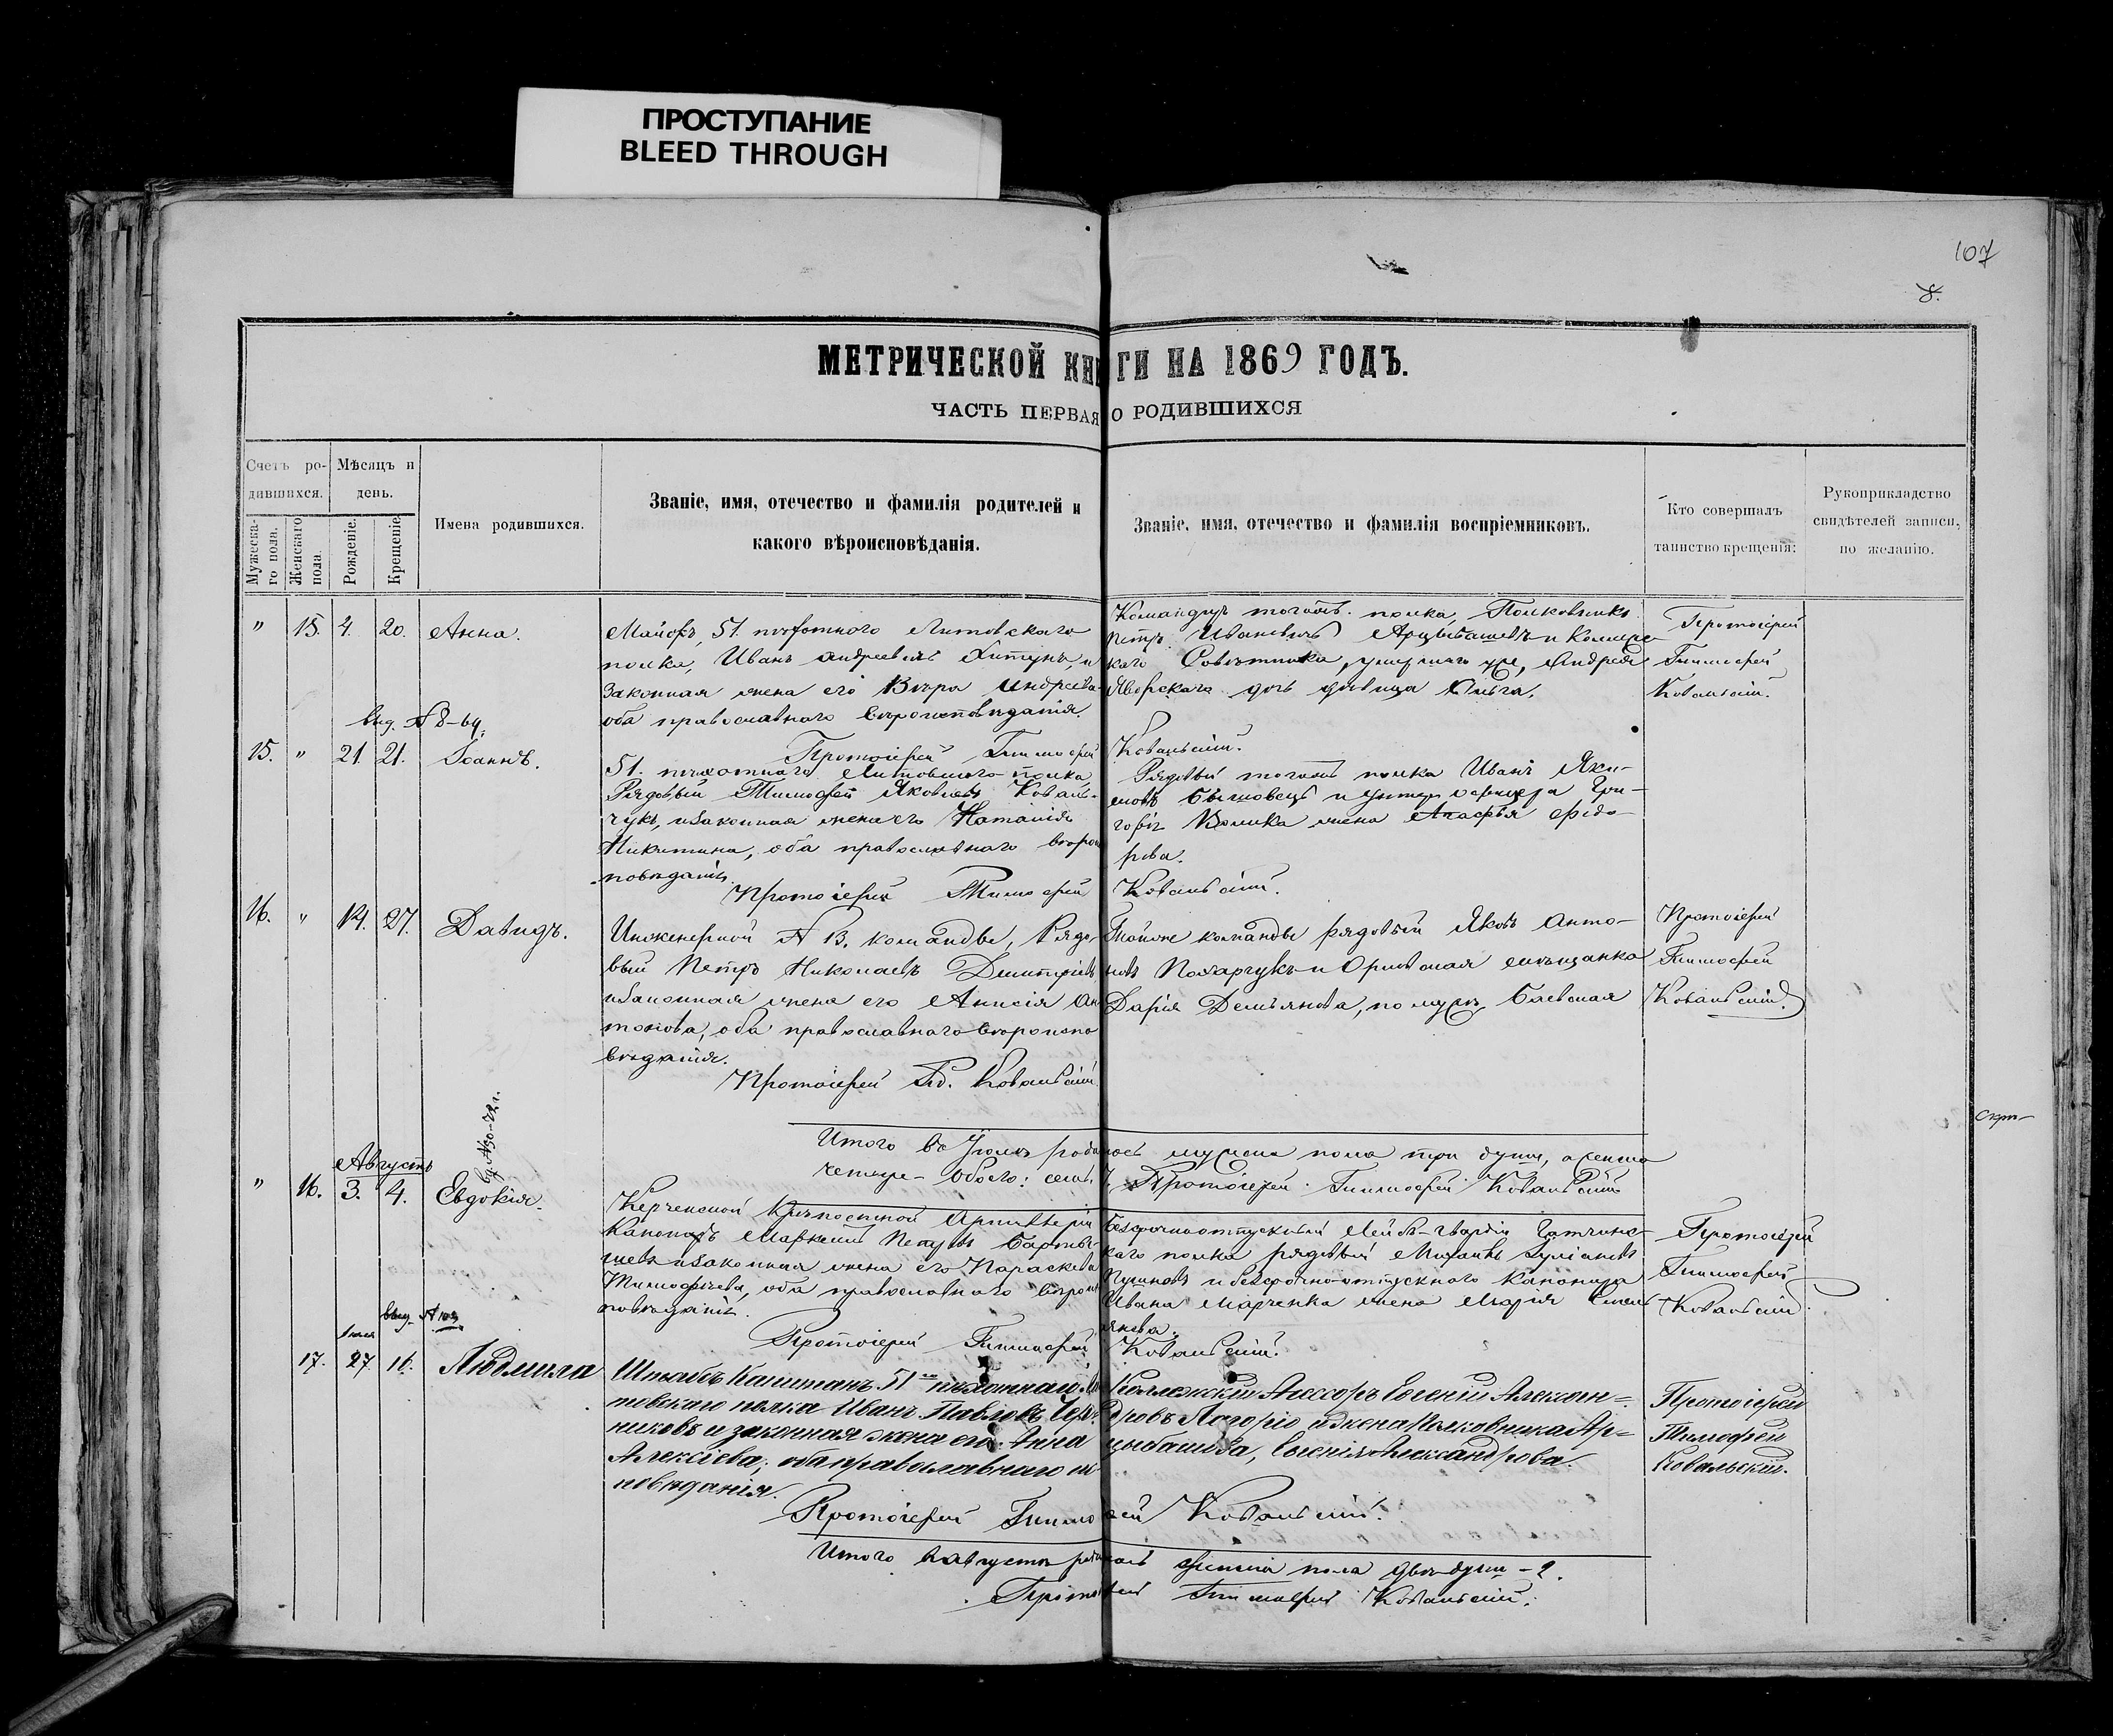 ПРОСТУПАНИЕ
BLEED THROUGH
107
8.
МЕТРИЧЕСКОЙ КНИГИ НА 1869 ГОДЪ.
ЧАСТЬ ПЕРВАЯ О РОДИВШИХСЯ
Счетъ ро-
дившихся.
Мужеска-
го пола.
Женскаго
пола.
Мѣсяцъ и
день.
Рожденіе.
Крещеніе.
Имена родившихся.
Званіе, имя, отечество и фамилія родителей и
какого вѣроисповѣданія.
Званіе, имя, отечество и фамилія воспріемниковъ.
Кто совершалъ
таинство крещенія:
Рукоприкладство
свидѣтелей записи,
по желанію.
" 15. 4. 20. Анна.
Маіоръ, 51. пѣхотнаго Литовскаго
полка, Иванъ Андреевичъ и
законная жена его Вѣра Андреева
оба православнаго вѣроисповѣданія.
Протоіерей Тимофей Ковальскій.
Командиръ тогожъ полка, Полковникъ
Петръ Ивановичъ Арцыбашевъ и
Совѣтника, умершаго уже, Андрея
Яворскаго дочь дѣвица Ольга.
Протоіерей
Тимофей
Ковальскій.
выд. № 8-69.
15. " 21. 21. Іоаннъ.
51. пѣхотнаго Литовскаго полка
Рядовый Тимофей Яковлевъ Коваль-
чукъ, и законная жена его Наталія
Никитина, оба православнаго вѣроис-
повѣданія.
Протоіерей Тимофей Ковальскій.
Рядовый тогожъ полка Иванъ Яки-
мовъ и унтеръ офицера Гри-
горія жена Агафья Федо-
рова.
16. " 14. 27. Давидъ.
Инженерной № 13. команды, Рядо-
вый Петръ Николаевъ Димитріевъ
и законная жена его Анисія Ан-
тонова, оба православнаго вѣроиспо-
вѣданія.
Протоіерей Т. Ковальскій.
Тойже команды рядовый Яковъ Анто-
новъ и Орловская мѣщанка
Дарія Демьянова, по мужѣ Баевская
Протоіерей
Тимофей
Ковальскій.
Итого въ Іюлѣ родилось мужеска пола три души, а женска
четыре - обоего: семь. 7. Протоіерей Тимофей Ковальскій
скрѣ-
Августъ
" 16. 3. 4. Евдокія.
Керченской Крѣпостной Артиллеріи
Канониръ
и законная жена его Параскева
Тимофѣева, оба православнаго вѣроис-
повѣданія.
Протоіерей Тимофей Ковальскій.
Безсрочноотпускный Лейбъ-гвардіи Гатчинс-
каго полка рядовый
и безсрочноотпускнаго Канонира
Ивана Марченка жена Марія
Протоіерей
Тимофей
Ковальскій
Іюля
17. 27. 16. Людмила
Штабсъ Капитанъ 51го пѣхотнаго Ли-
товскаго полка Иванъ Павловъ
и законная жена его Анна
Алексіева; оба православнаго ис-
повѣданія.
Протоіерей Тимофей Ковальскій.
Коллежскій Ассессоръ Евгеній Алексан=
дровъ Лагоріо и жена Полковника Ар=
цыбашева, Евгенія Александрова.
Протоіерей
Тимофей
Ковальскій.
Итого въ Августѣ родилось женска пола двѣ души - 2.
Протоіерей Тимофей Ковальскій.